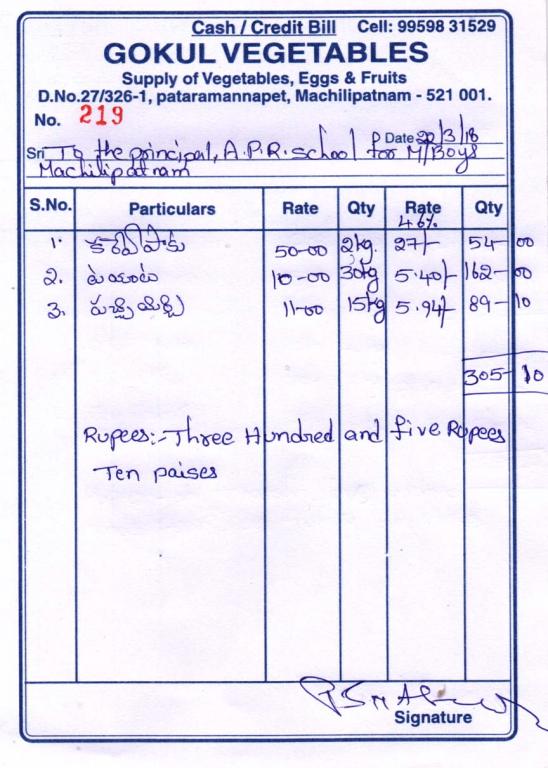 Cash / Credit Bill Cell: 99598 31529
GOKUL VEGETABLES
Supply of Vegetables, Eggs & Fruits
D.No.27/326-1, pataramannapet, Machilipatnam - 521 001.
No. 219
Date 22/3/18
Sri To the principal, A.P.R. school for M/Boys
Machilipatnam
S.No. Particulars Rate Qty Rate Qty
46%
1. కరివేపాకు 50-00 2kg. 27/- 54-00
2. టమాట 10-00 30kg 5.40/- 162-00
3. పచ్చిమిర్చి 11-00 15kg 5.94/- 89-10
305-10
Rupees:- Three Hundred and five Rupees
Ten paises
Signature